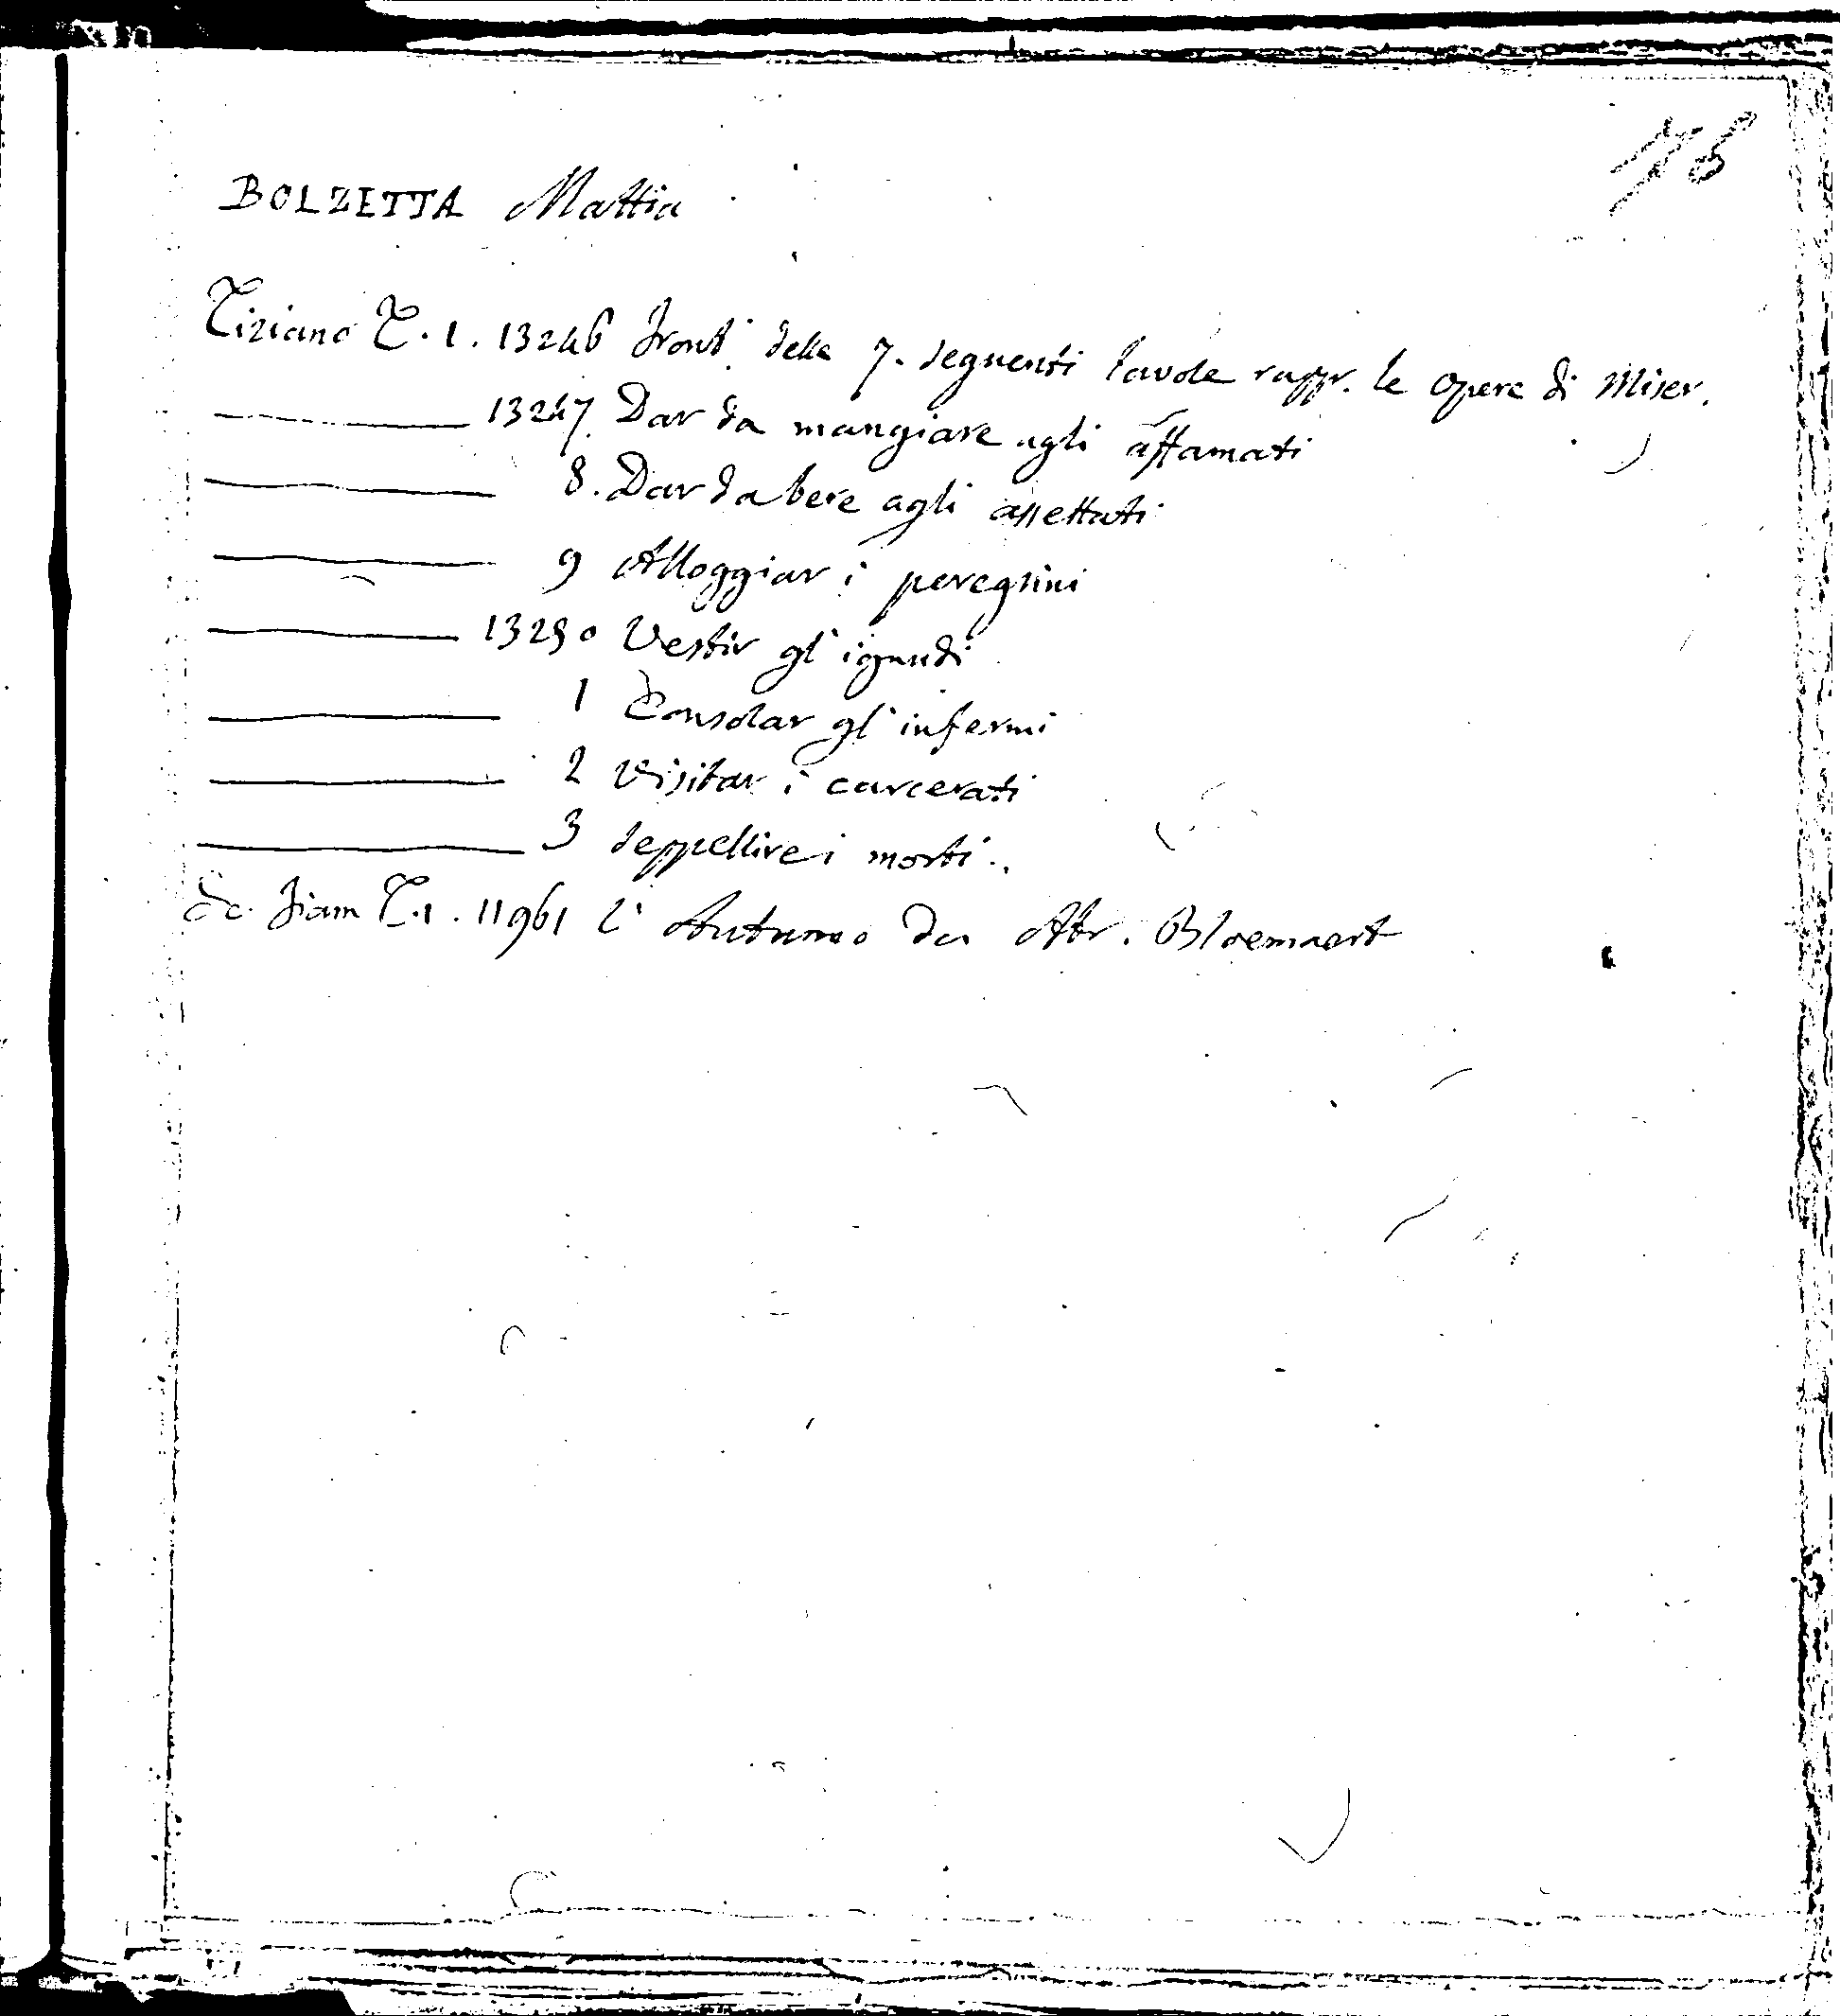 76
BOLZETTA Mattia
Tiziano T. 1. 13246 Front. delle 7. seguenti tavole rappr. le opere di Miser.
13247. Dar da mangiare agli affamati
8. Dar da bere agli assettati
9 Alloggiar i peregrini
13250 Vestir gl' ignudi
1 Consolar gl' infermi
2 Visitar i carcerati
3 seppellire i morti.
Sc. Fiam T. 1. 11961 L' Autunno da Abr. Bloemaert